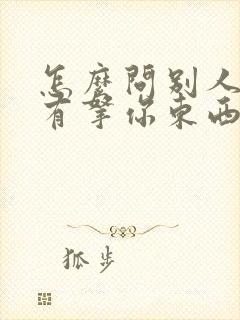 怎麼問別人
有拏你東西
狐步